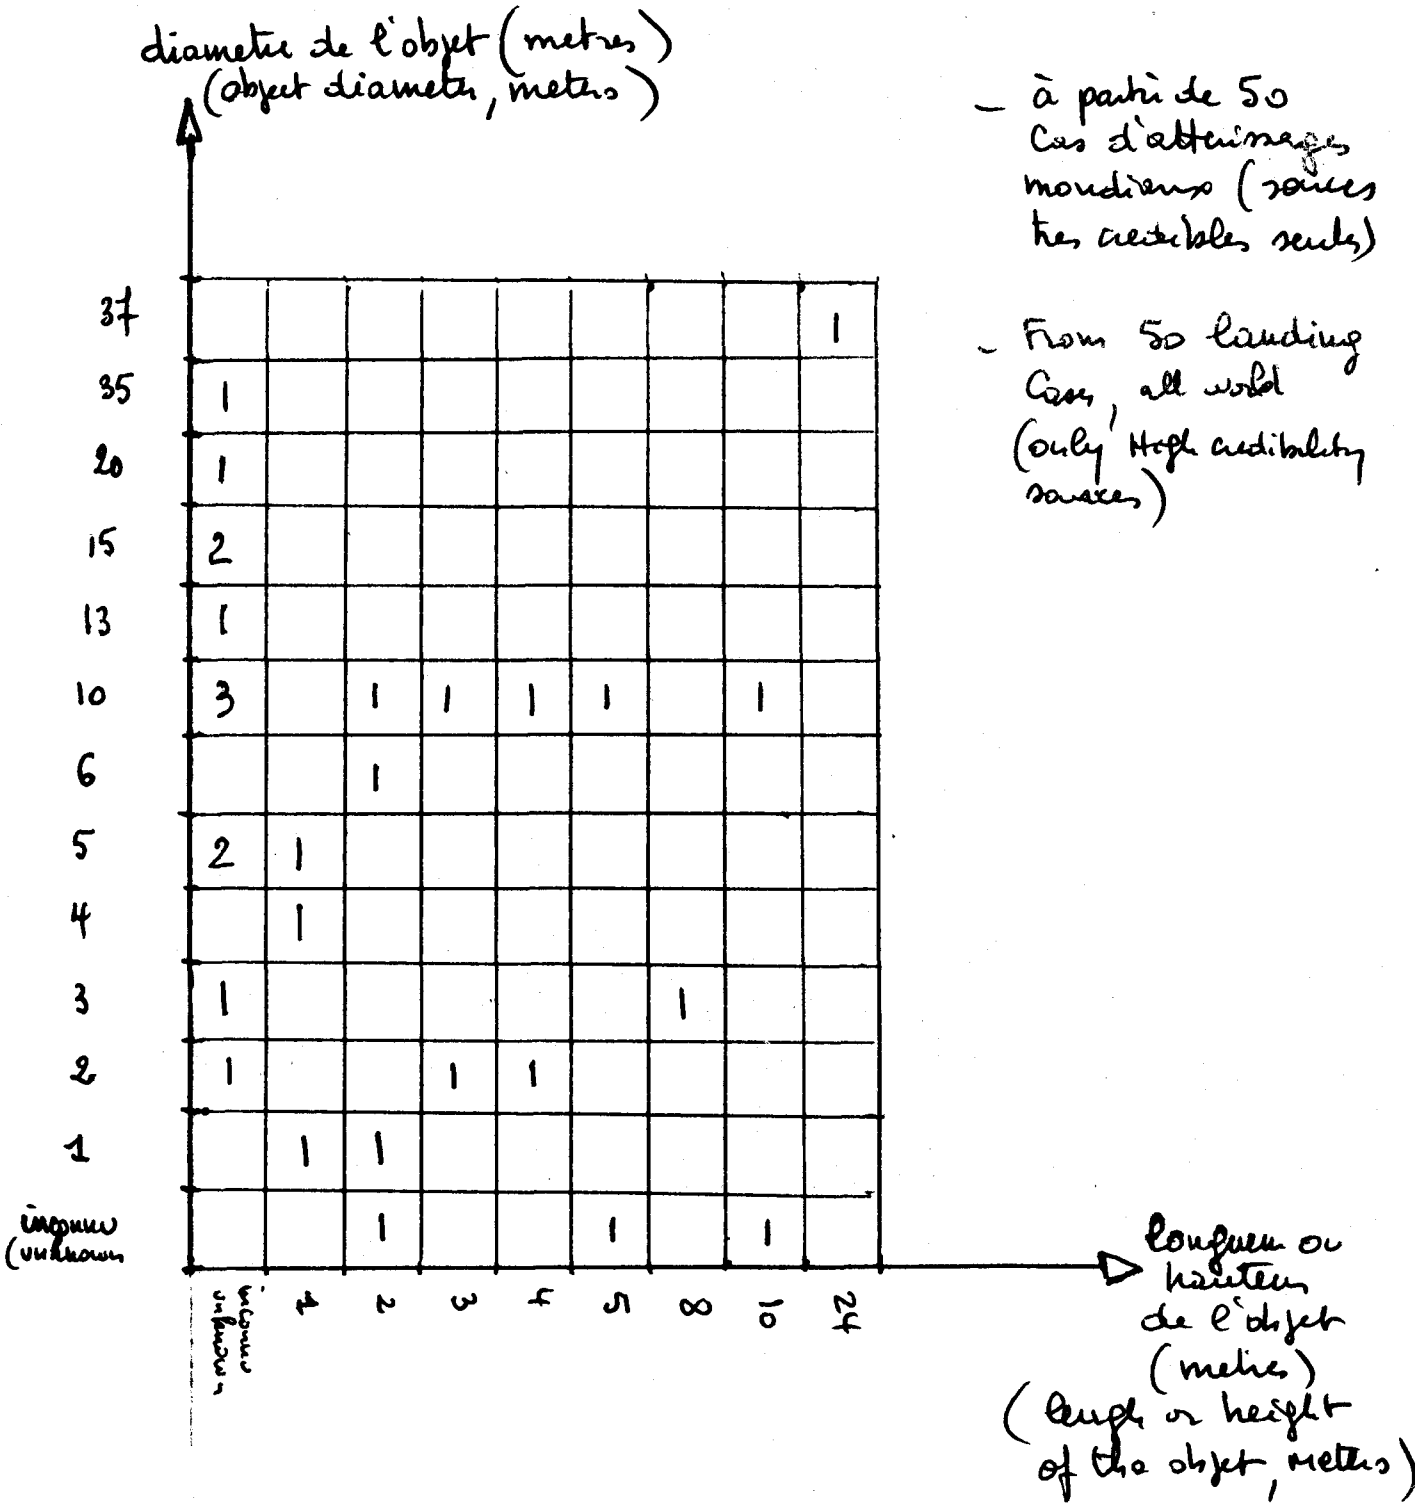 diametre de l'objet (metres)
(object diameter, meters)
- à partir de 50
Cas d'atterrissages
mondiaux (sources
tres credibles seules)
- From 50 landing
Cases, all world
(only High credibility
sources)
37 1
35 1
20 1
15 2
13 1
10 3 1 1 1 1 1
6 1
5 2 1
4 1
3 1 1
2 1 1 1
1 1 1
inconnu
(unknown 1 1 1
inconnu 1 2 3 4 5 8 10 24
unknown
longueur ou
hauteur
de l'objet
(metres)
(lengh or height
of the objet, meters)